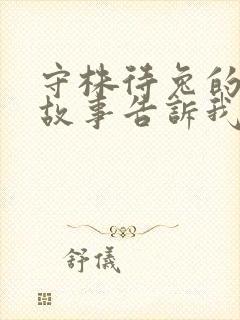 守株待兔的
故事告訴我
舒儀